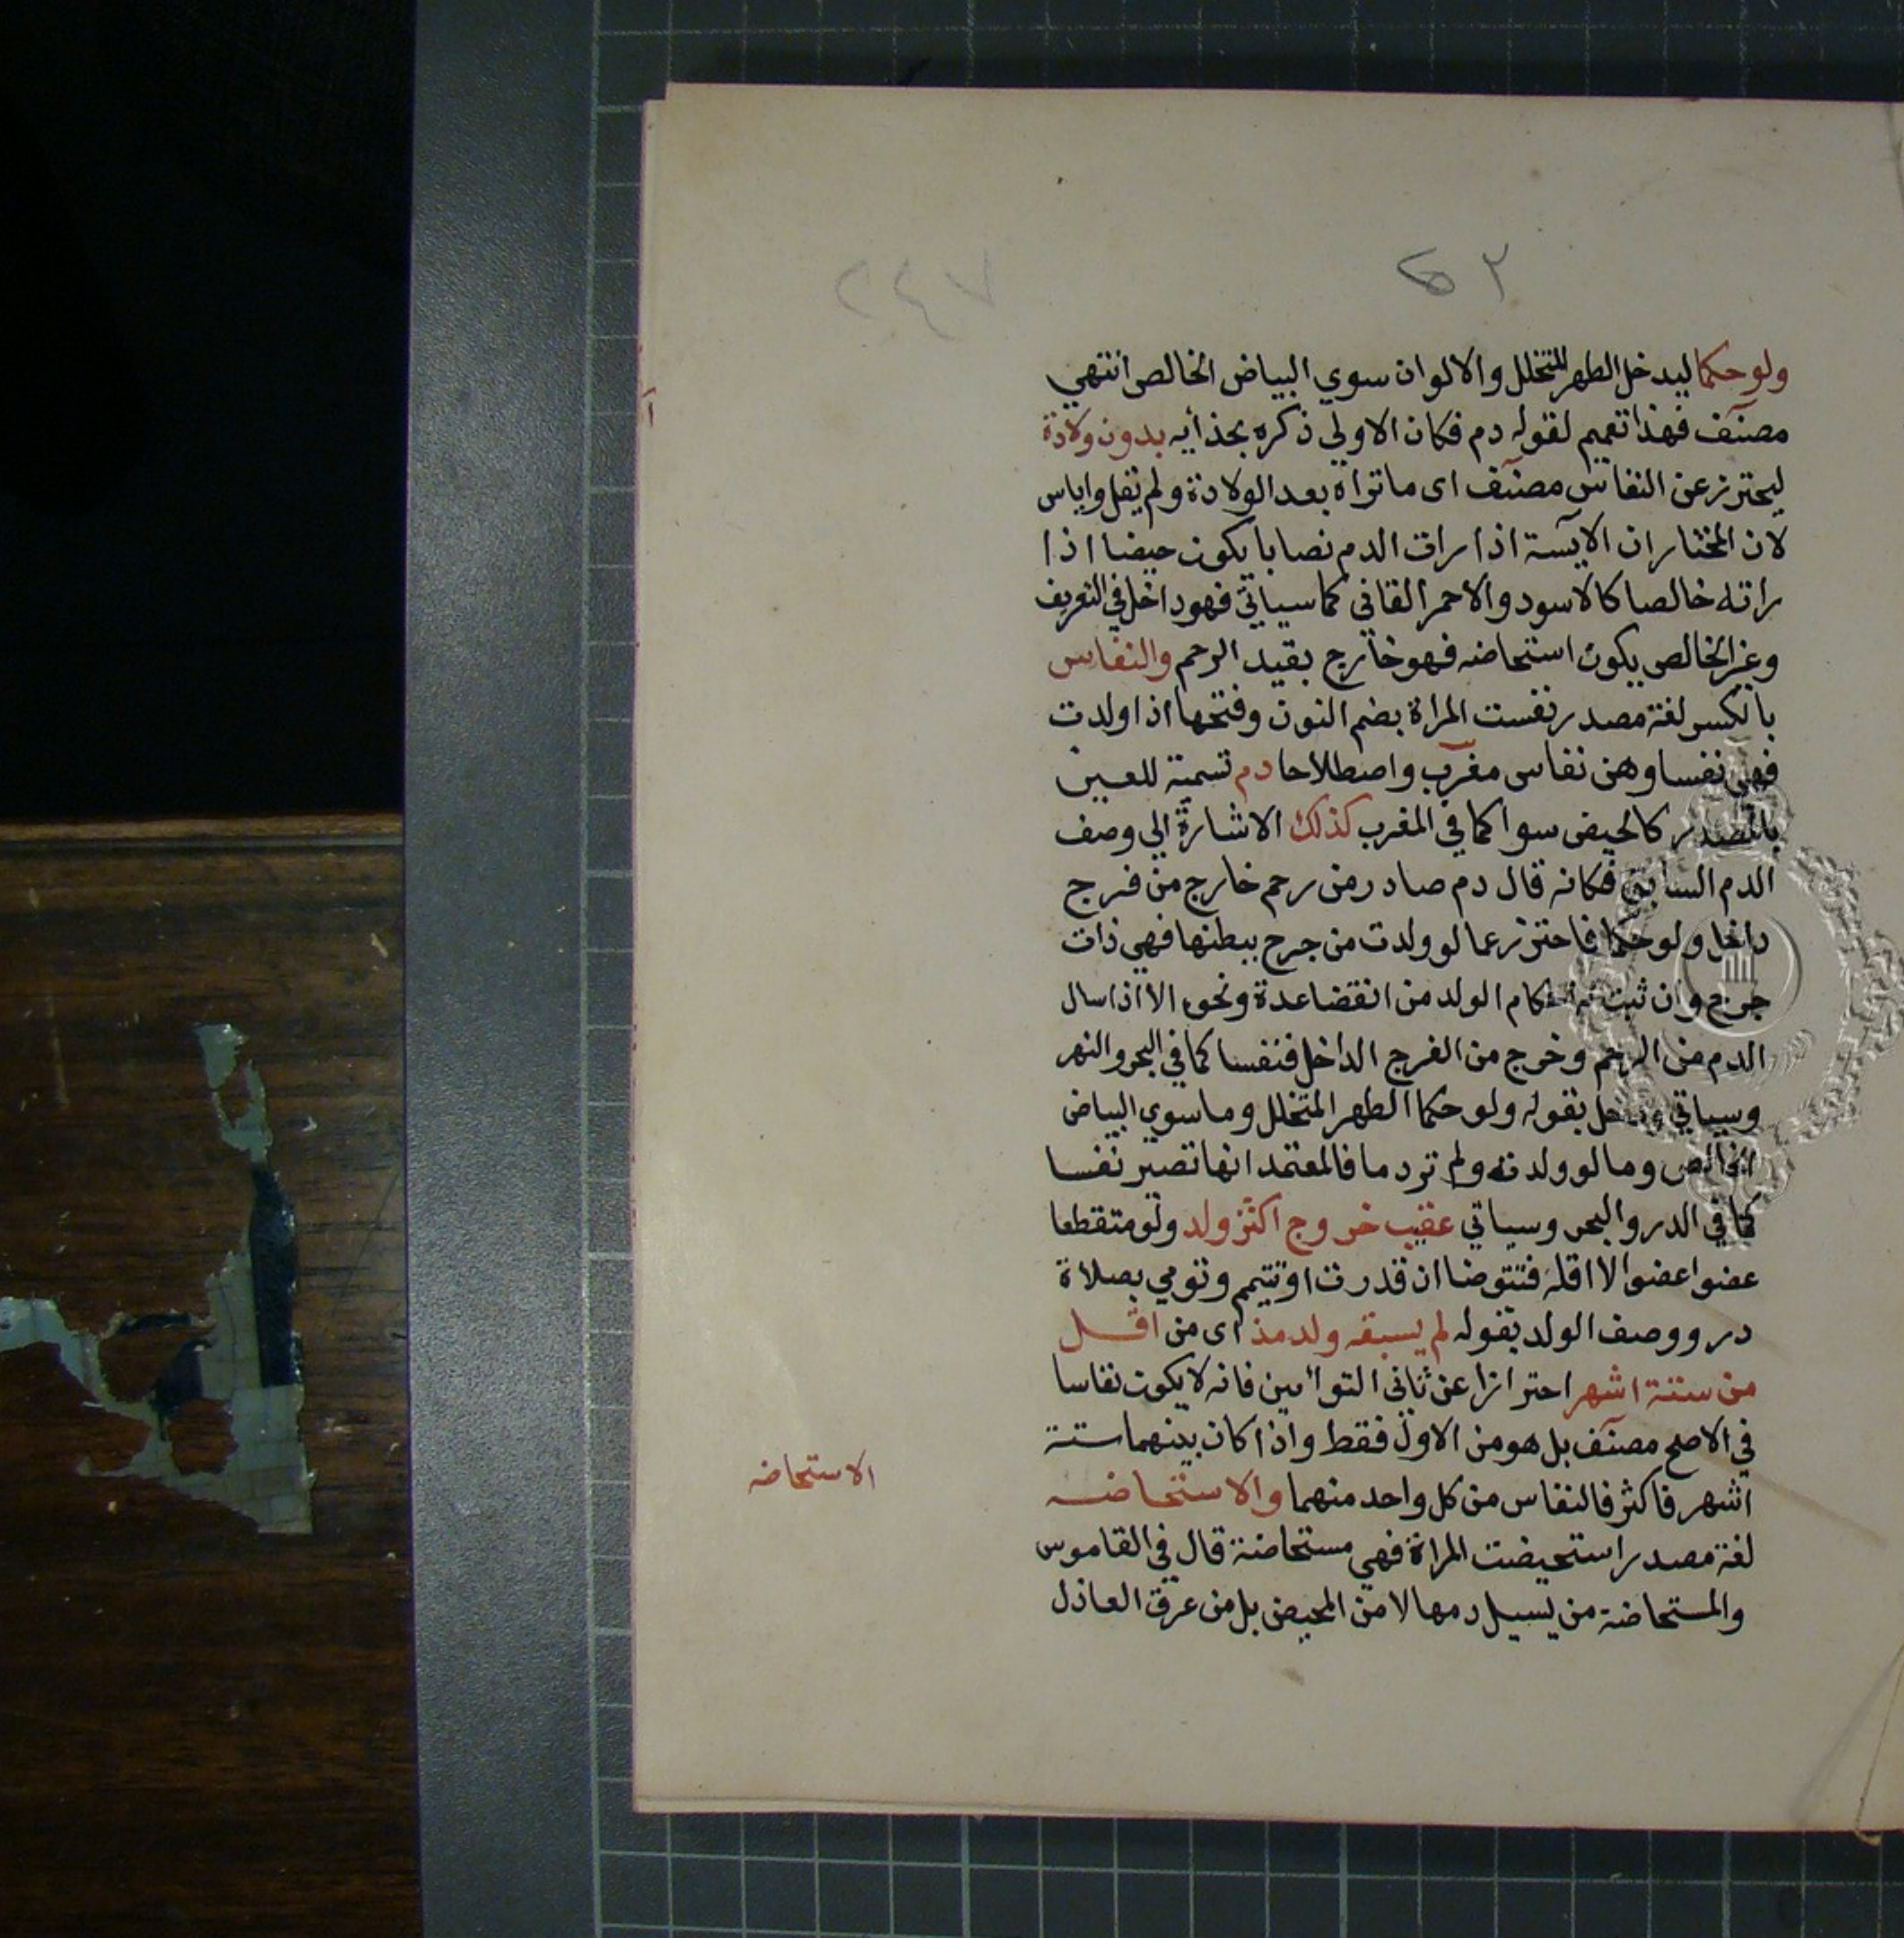 ٥٣
٢٤٧
ولو حكما ليدخل الطهر المتخلل والالوان سوي البياض الخالص انتهي
مصنف فهذا تعميم لقوله دم فكان الاولي ذكره بحذائه بدون ولادة
ليحترز عن النفاس مصنف اى ما تراه بعد الولادة ولم يقل واياس
لان المختار ان الايسة اذا رات الدم نصابا يكون حيضا اذا
راته خالصا كالاسود والاحمر القانى كما سياتي فهو داخل في التعريف
وغير الخالص يكون استحاضه فهو خارج بقيد الرحم والنفاس
بالكسر لغة مصدر نفست المراة بضم النون وفتحها اذا ولدت
فهي نفسا وهن نفاس مغرب واصطلاحا دم تسمية للعين
بالمصدر كالحيض سوا كما في المغرب كذلك الاشارة الي وصف
الدم السابق فكانه قال دم صادر من رحم خارج من فرج
داخل ولو حكما فاحترز عما لو ولدت من جرح ببطنها فهي ذات
جرح وان ثبت له احكام الولد من انقضا عدة ونحوه الا اذا سال
الدم من الرحم وخرج من الفرج الداخل فنفسا كما في البحر والنهر
وسياتي ودخل بقوله ولو حكما الطهر المتخلل وما سوي البياض
الخالص وما لو ولدته ولم تر دما فالمعتمد انها تصير نفسا
كما في الدر والبحر وسياتي عقيب خروج اكثر ولد ولو متقطعا
عضوا عضوا لا اقله فتتوضا ان قدرت او تتيمم وتومي بصلاة
در ووصف الولد بقوله لم يسبقه ولد مذ اى من اقل
من ستة اشهر احترازا عن ثانى التوأمين فانه لا يكون نفاسا
في الاصح مصنف بل هو من الاول فقط واذا كان بينهما ستة
اشهر فاكثر فالنفاس من كل واحد منهما والاستحاضه
لغة مصدر استحيضت المراة فهي مستحاضة قال في القاموس
والمستحاضة من يسيل دمها لا من المحيض بل من عرق العاذل
الاستحاضه